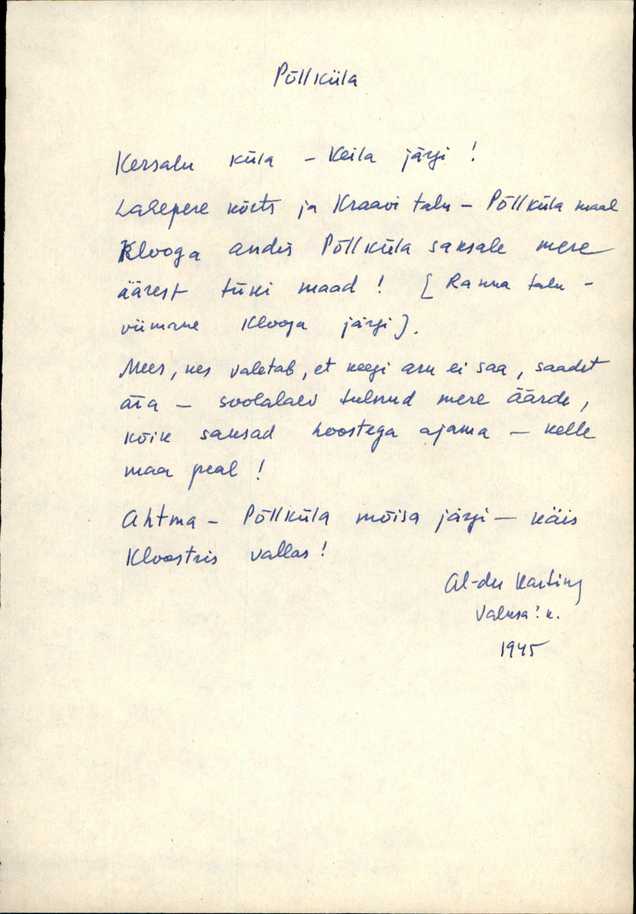 Põllküla
Kersalu küla – Keila järgi!
Lahepere kõrts ja Kraavi talu – Põllküla maal
Klooga andis Põllküla saksale mere
äärest tüki maad! [Ranna talu –
viimane Klooga järgi].
Mees, kes valetab, et keegi aru ei saa, saadet
ära – soolalaev tulnud mere äärde,
kõik saksad hoostega ajama – kelle
maa peal!
Ahtma – Põllküla mõisa järgi – käis
Kloostris vallas!
Al-der
1945